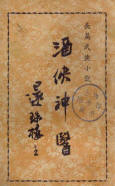 長篇武俠小說
酒俠神醫
還珠樓主